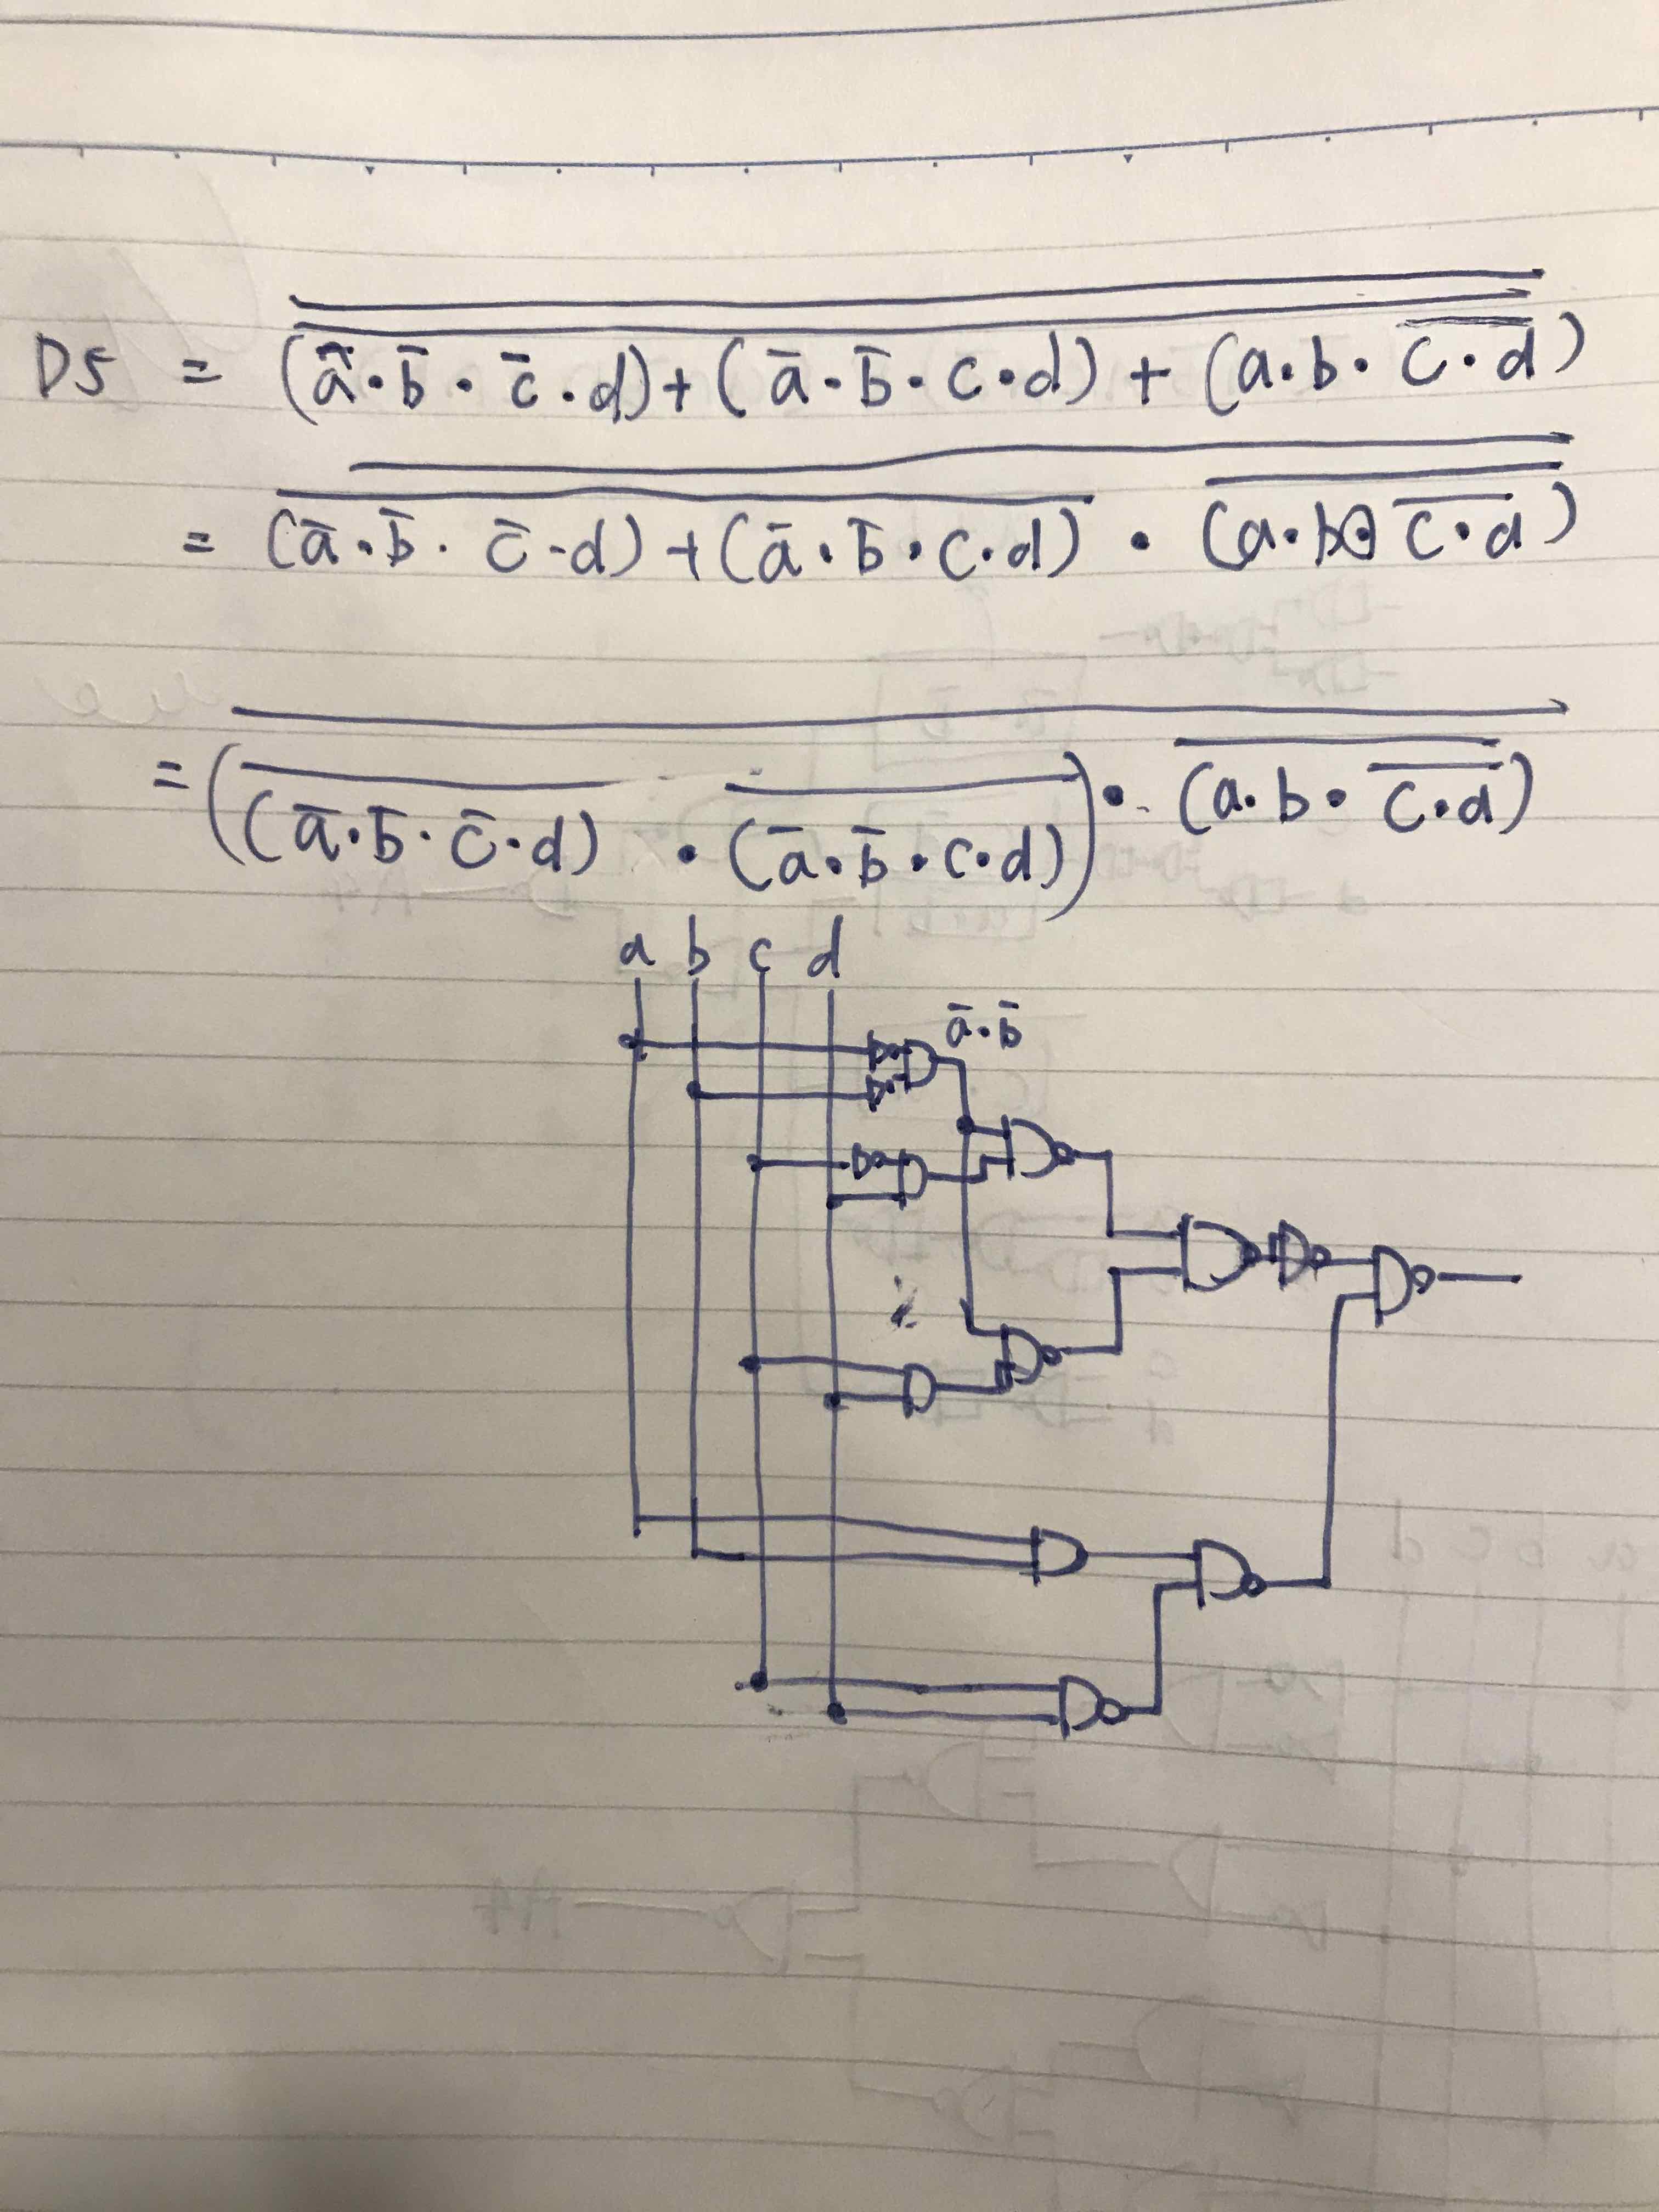 D5 = \overline{\overline{(\bar{a}·\bar{b}·\bar{c}·d)+(\bar{a}·\bar{b}·c·d)+(a·b·\overline{c·d})}}
= \overline{\overline{(\bar{a}·\bar{b}·\bar{c}·d)+(\bar{a}·\bar{b}·c·d)}·\overline{(a·b·\overline{c·d})}}
= \overline{(\overline{(\bar{a}·\bar{b}·\bar{c}·d)}·\overline{(\bar{a}·\bar{b}·c·d)})·\overline{(a·b·\overline{c·d})}}
a b c d
\bar{a}·\bar{b}